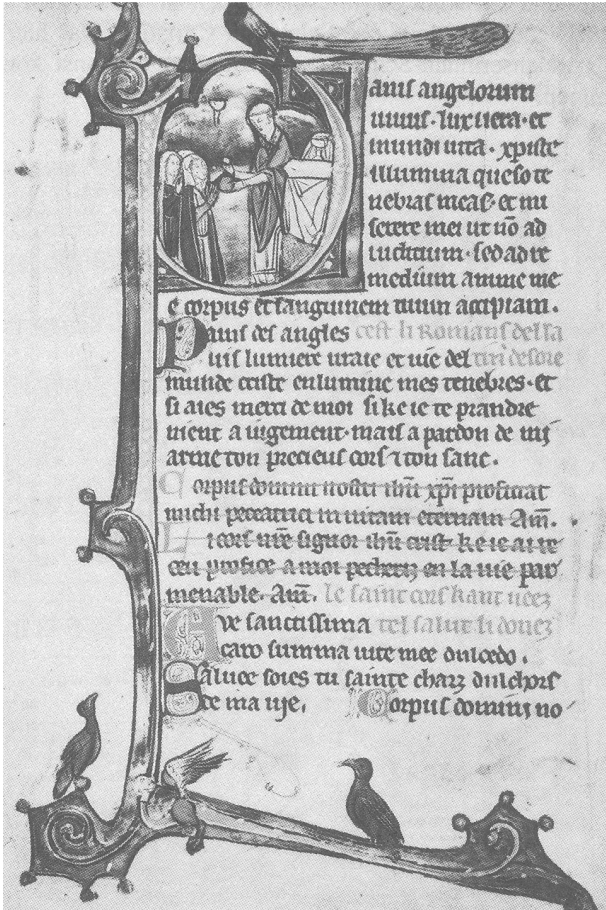 anis angelorum
uiuus· lux uera· et
mundi uita· xpiste
illumina queso te
nebras meas· et mi
serere mei ut nõ ad
iudicium· sed ad re
medium anime me
e corpus et sanguinem tuum accipiam·
Pains des angles cest li Romans del sa
uis lumiere uraie et uie del
munde criste enlumine mes tenebres· et
si aies merci de moi si ke ie te prandre
nient a iugement· mais a pardon de mi
arme ton precieus cors ⁊ ton sanc·
Corpus domini nostri ihũ xpi proficiat
michi peccatrici in uitam eternam Am̃·
Li cors nr̃e signor ihũ crist ke ie ai re
ceu profice a moi pecheriz en la uie par
menable· Am̃· le saint cors kant ueez
Aue sanctissima tel salut li donez
caro summa uite mee dulcedo·
Saluce soies tu sainte charz dulchors
de ma uie· Corpus domini no